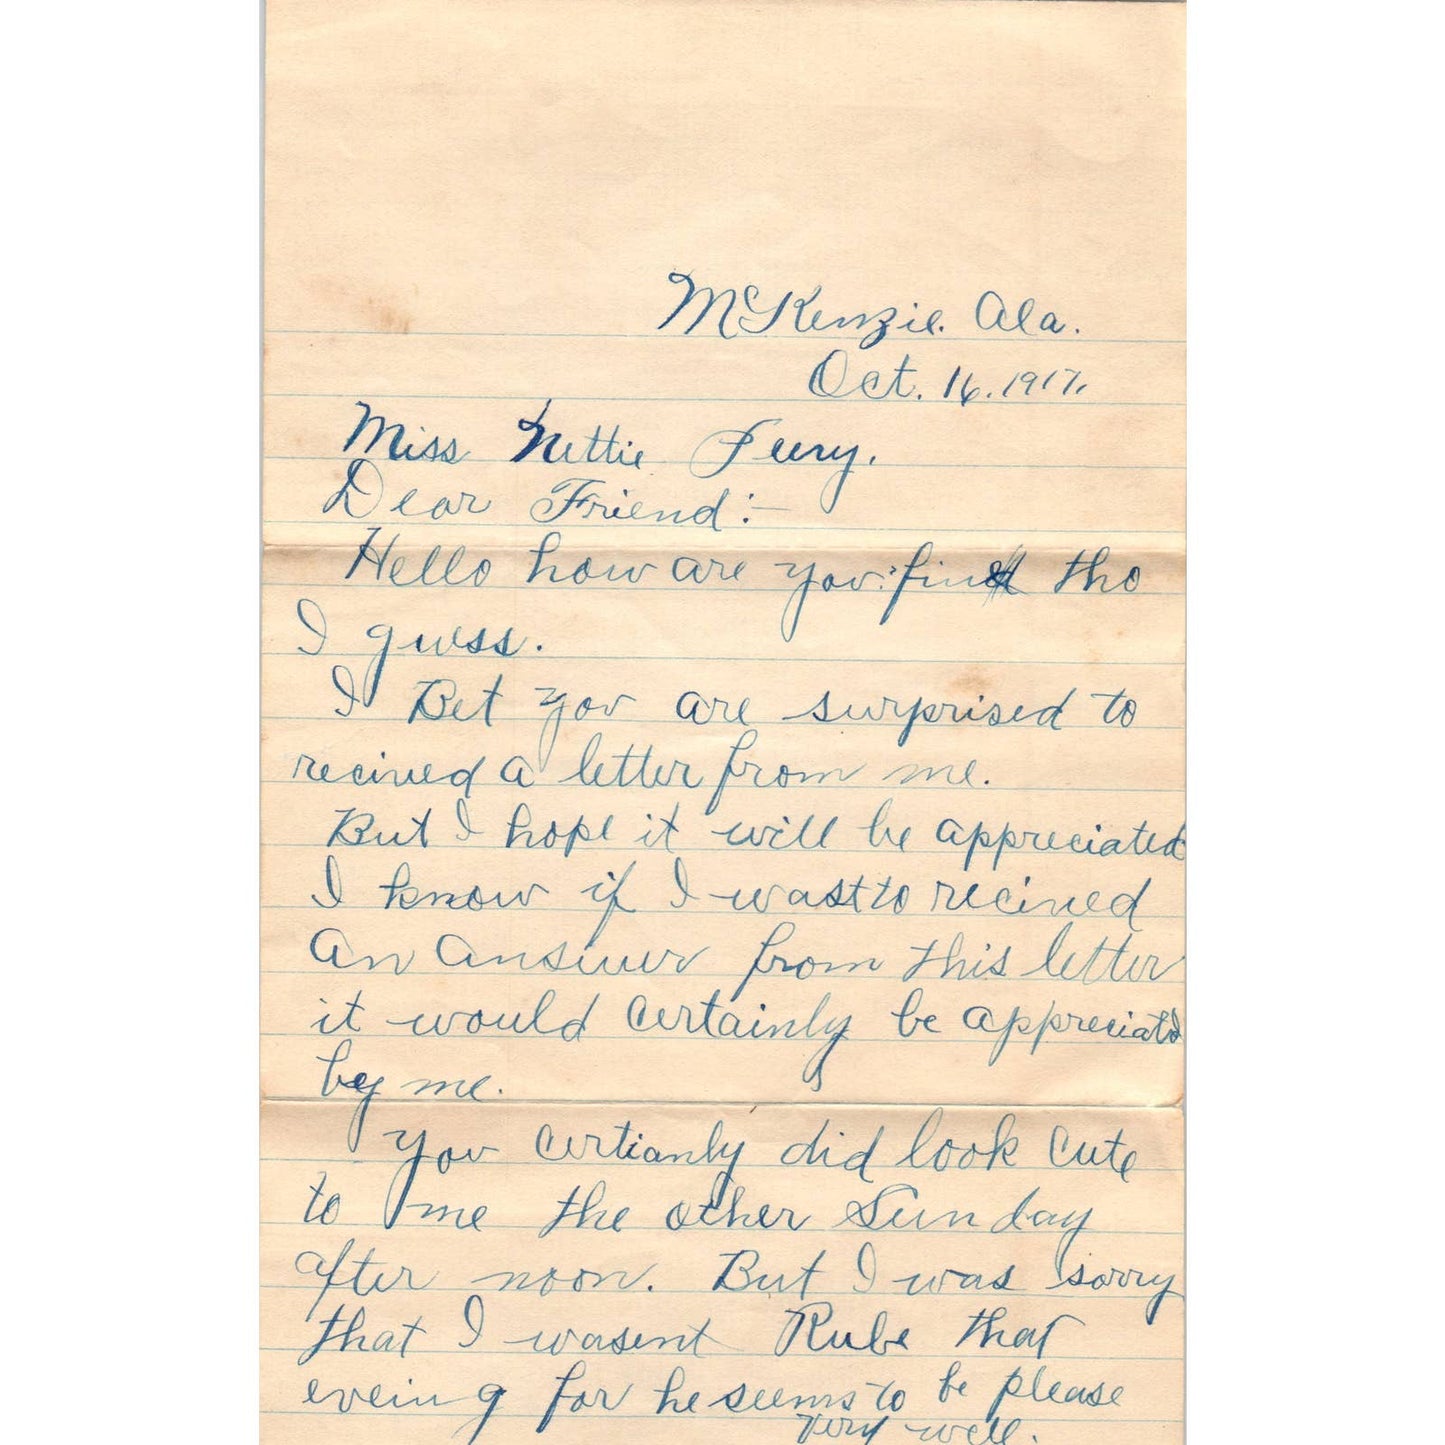 McKenzie. Ala.
Oct. 16. 1917.
Miss Nettie
Dear Friend:-
Hello how are you? fine tho
I guess.
I Bet you are surprised to
recived a letter from me.
But I hope it will be appreciated
I know if I wast to recived
an answer from this letter
it would certainly be appreciated
by me.
You certianly did look cute
to me the other Sunday
after noon. But I was sorry
that I wasent Rube that
eveing for he seems to be please
very well.